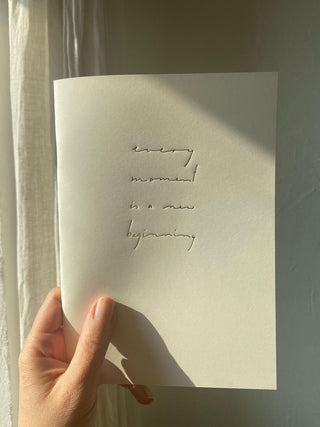 every
moment
is a new
beginning